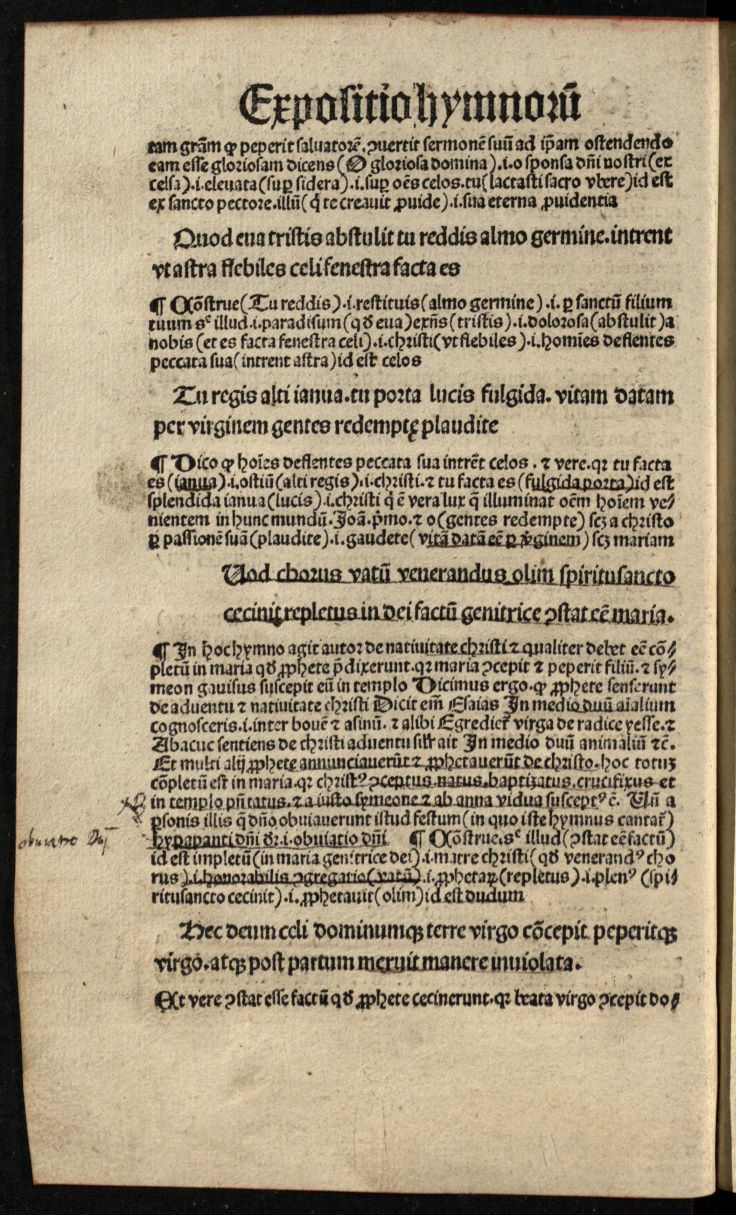 Expositio hymnorū
tam grām qꝫ peperit saluatorē. ꝯuertit sermonē suū ad ip̄am ostendendo
eam esse gloriosam dicens (O gloriosa domina) .i. o sponsa dn̄i nostri (ex
celsa) .i. eleuata (sup̱ sidera) .i. sup̱ oēs celos. tu (lactasti sacro vbere) id est
ex sancto pectore. illū (q̄ te creauit ꝓuide) .i. sua eterna ꝓuidentia
Quod eua tristis abstulit tu reddis almo germine. intrent
vt astra flebiles celi fenestra facta es
¶ Cōstrue (Tu reddis) .i. restituis (almo germine) .i. ꝑ sanctū filium
tuum sᶜ illud .i. paradisum (qď eua) exn̄s (tristis) .i. dolorosa (abstulit) a
nobis (et es facta fenestra celi) .i. christi (vt flebiles) .i. homīes deflentes
peccata sua (intrent astra) id est celos
Tu regis alti ianua. tu porta lucis fulgida. vitam datam
per virginem gentes redemptę plaudite
¶ Dico qꝫ hoīes deflentes peccata sua intrēt celos. ⁊ vere. qꝛ tu facta
es (ianua) .i. ostiū (alti regis) .i. christi. ⁊ tu facta es (fulgida porta) id est
splendida ianua (lucis) .i. christi q̄ ē vera lux q̄ illuminat oēm hoīem ve⸗
nientem in hunc mundū. Joā. p̄mo. ⁊ o (gentes redempte) scꝫ a christo
ꝑ passionē suā (plaudite) .i. gaudete (vitā datā eē ꝑ v̄ginem) scꝫ mariam
Uod chorus vatū venerandus olim spiritusancto
cecinit repletus in dei factū genitrice ꝯstat eē maria.
¶ In hoc hymno agit autor de natiuitate christi ⁊ qualiter debet eē cō⸗
pletū in maria qď ꝓphete p̄dixerunt. qꝛ maria ꝯcepit ⁊ peperit filiū. ⁊ sy⸗
meon gauisus suscepit eū in templo Dicimus ergo. qꝫ ꝓphete senserunt
de aduentu ⁊ natiuitate christi Dicit em̄ Esaias In medio duū aīalium
cognosceris .i. inter bouē ⁊ asinū. ⁊ alibi Egredier̄ virga de radice yesse. ⁊
Abacuc sentiens de christi aduentu silr̄ ait In medio duū animaliū ⁊c̄.
Et multi alij ꝓphete annunciauerūt ⁊ ꝓphetauerūt de christo. hoc totuꝫ
cōpletū est in maria. qꝛ christꝰ ꝯceptus. natus. baptizatus. crucifixus et
in templo pn̄tatus. ⁊ a iusto symeone ⁊ ab anna vidua susceptꝰ ē. Uñ a
ꝑsonis illis q̄ dn̄o obuiauerunt istud festum (in quo iste hymnus cantat̄)
hypapanti dn̄i dr̄ .i. obuiatio dn̄i. ¶ Cōstrue. sᶜ illud (ꝯstat eē factū)
id est impletū (in maria genitrice dei) .i. matre christi (qď venerandꝰ cho
rus) .i. honorabilis ꝯgregatio (vatū) .i. ꝓphetaꝝ (repletus) .i. plenꝰ (spi⸗
ritusancto cecinit) .i. ꝓphetauit (olim) id est dudum
Hec deum celi dominumqꝫ terre virgo cōcepit peperitqꝫ
virgo. atqꝫ post partum meruit manere inuiolata.
Et vere ꝯstat esse factū qď ꝓphete cecinerunt. qꝛ beata virgo ꝯcepit do⸗